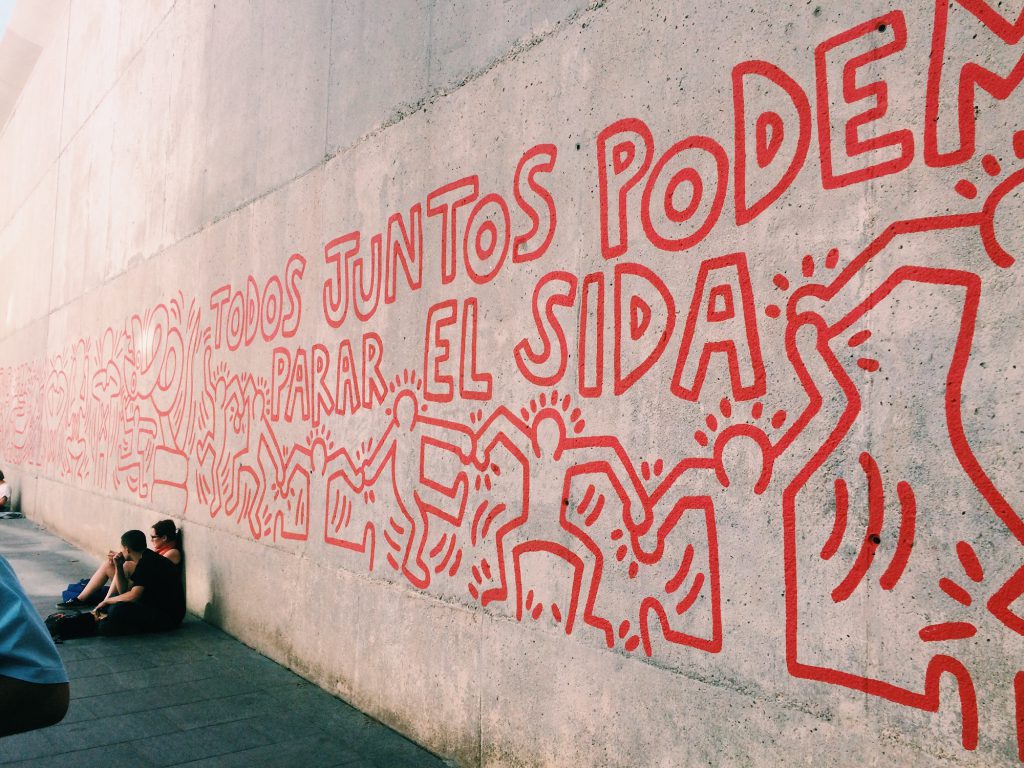 TODOS JUNTOS PODEM
PARAR EL SIDA